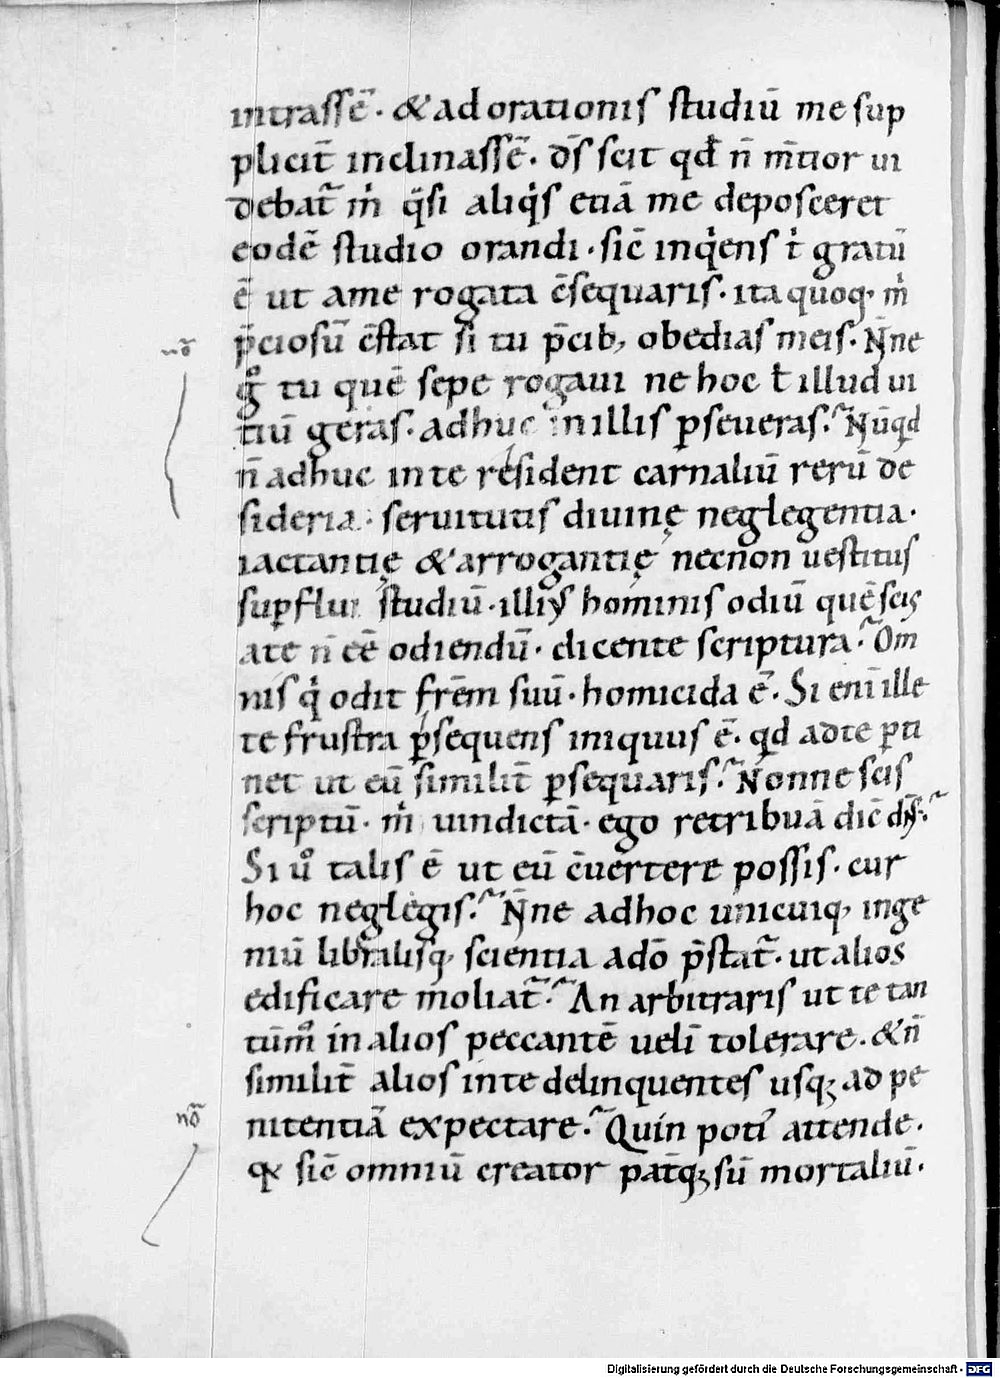 intrassē · & ad orationis studiū me sup
plicit̄ inclinassē · dn̄s scit qđ n̄ m̄tior ui
debat̄ m̍ q̄si aliq̍s etiā me deposceret
eodē studio orandi · sic̄ inq̍ens t̍ gratū
ē ut a me rogata c̄sequaris · ita quoq; m̍
p̄ciosū c̄stat si tu p̄cib; obedias meis · Nōne
nō
g̊ tu quē sepe rogaui ne hoc ł illud ui
tiū geras · adhuc in illis ꝑseueras? Nūqd
n̄ adhuc in te resident carnaliū rerū de
sideria · seruitutis diuinę neglegentia ·
iactantię & arrogantię necnon uestitus
suꝑflui studiū · illiꝰ hominis odiū quē scis
a te n̄ eē odiendū · dicente scriptura? Om
nis q̍ odit frēm suū · homicida ē · Si eni ille
te frustra ꝑsequens iniquus ē · qd ad te ꝑti
net ut eū similit̄ ꝑsequaris? Nonne scis
scriptū · m̍ uindictā · ego retribuā dic̄ dn̄s?
Si ů talis ē ut eū c̄uertere possis · cur
hoc neglegis? Nōne adhoc unicuiq; inge
niū libralisq; scientia adō p̄stat̄ · ut alios
edificare moliat̄? An arbitraris ut te tan
tūm̊ in alios peccantē uelī tolerare · & n̄
similit̄ alios in te delinquentes usq; ad pe
nitentiā expectare? Quin poti᾽ attende ·
nō
qꝛ sic̄ omniū creator pat̄q; sū mortaliū ·
Digitalisierung gefördert durch die Deutsche Forschungsgemeinschaft - DFG